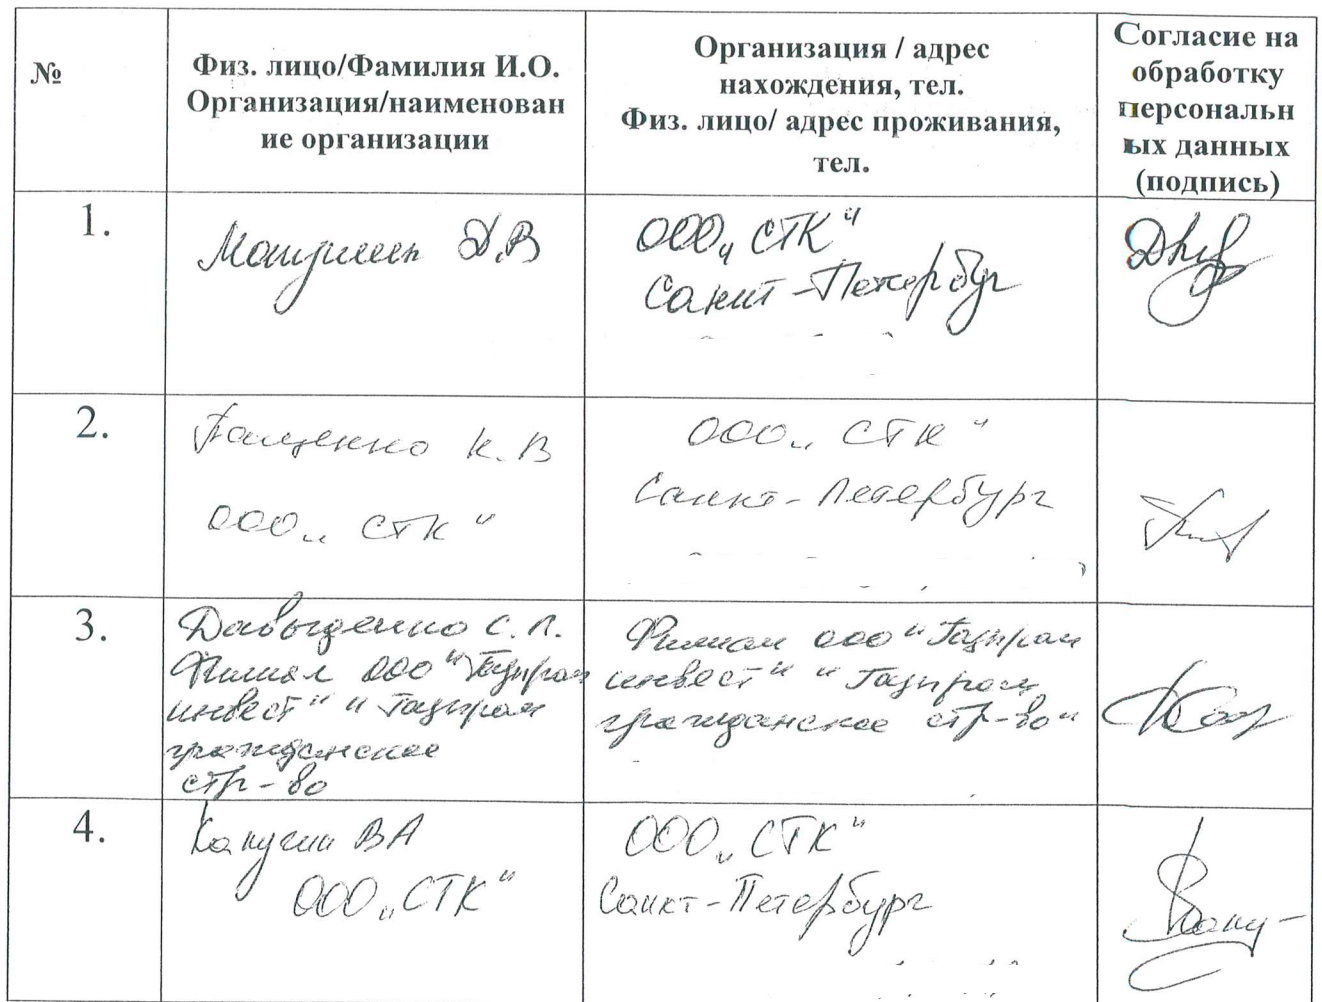 №
Физ. лицо/Фамилия И.О.
Организация/наименован
ие организации
Организация / адрес
нахождения, тел.
Физ. лицо/ адрес проживания,
тел.
Согласие на
обработку
персональн
ых данных
(подпись)
1.
Д.В
ООО „СТК"
Санкт-Петербург
2.
Пащенко К.В
ООО „СТК"
ООО „СТК"
Санкт-Петербург
3.
Давыденко С.Л.
Филиал ООО "Газпром
инвест" "Газпром
гражданское
стр-во
Филиал ООО "Газпром
инвест" "Газпром
гражданское стр-во"
4.
Капугин ВА
ООО „СТК"
ООО „СТК"
Санкт-Петербург